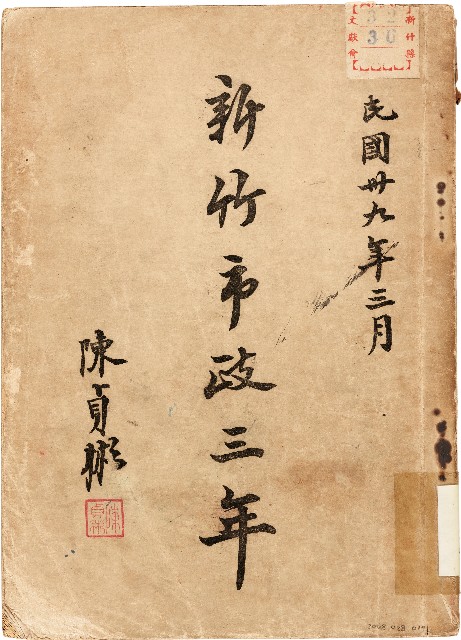 新竹縣
文獻會
32
30
民國卅九年三月
新竹市政三年
陳貞彬